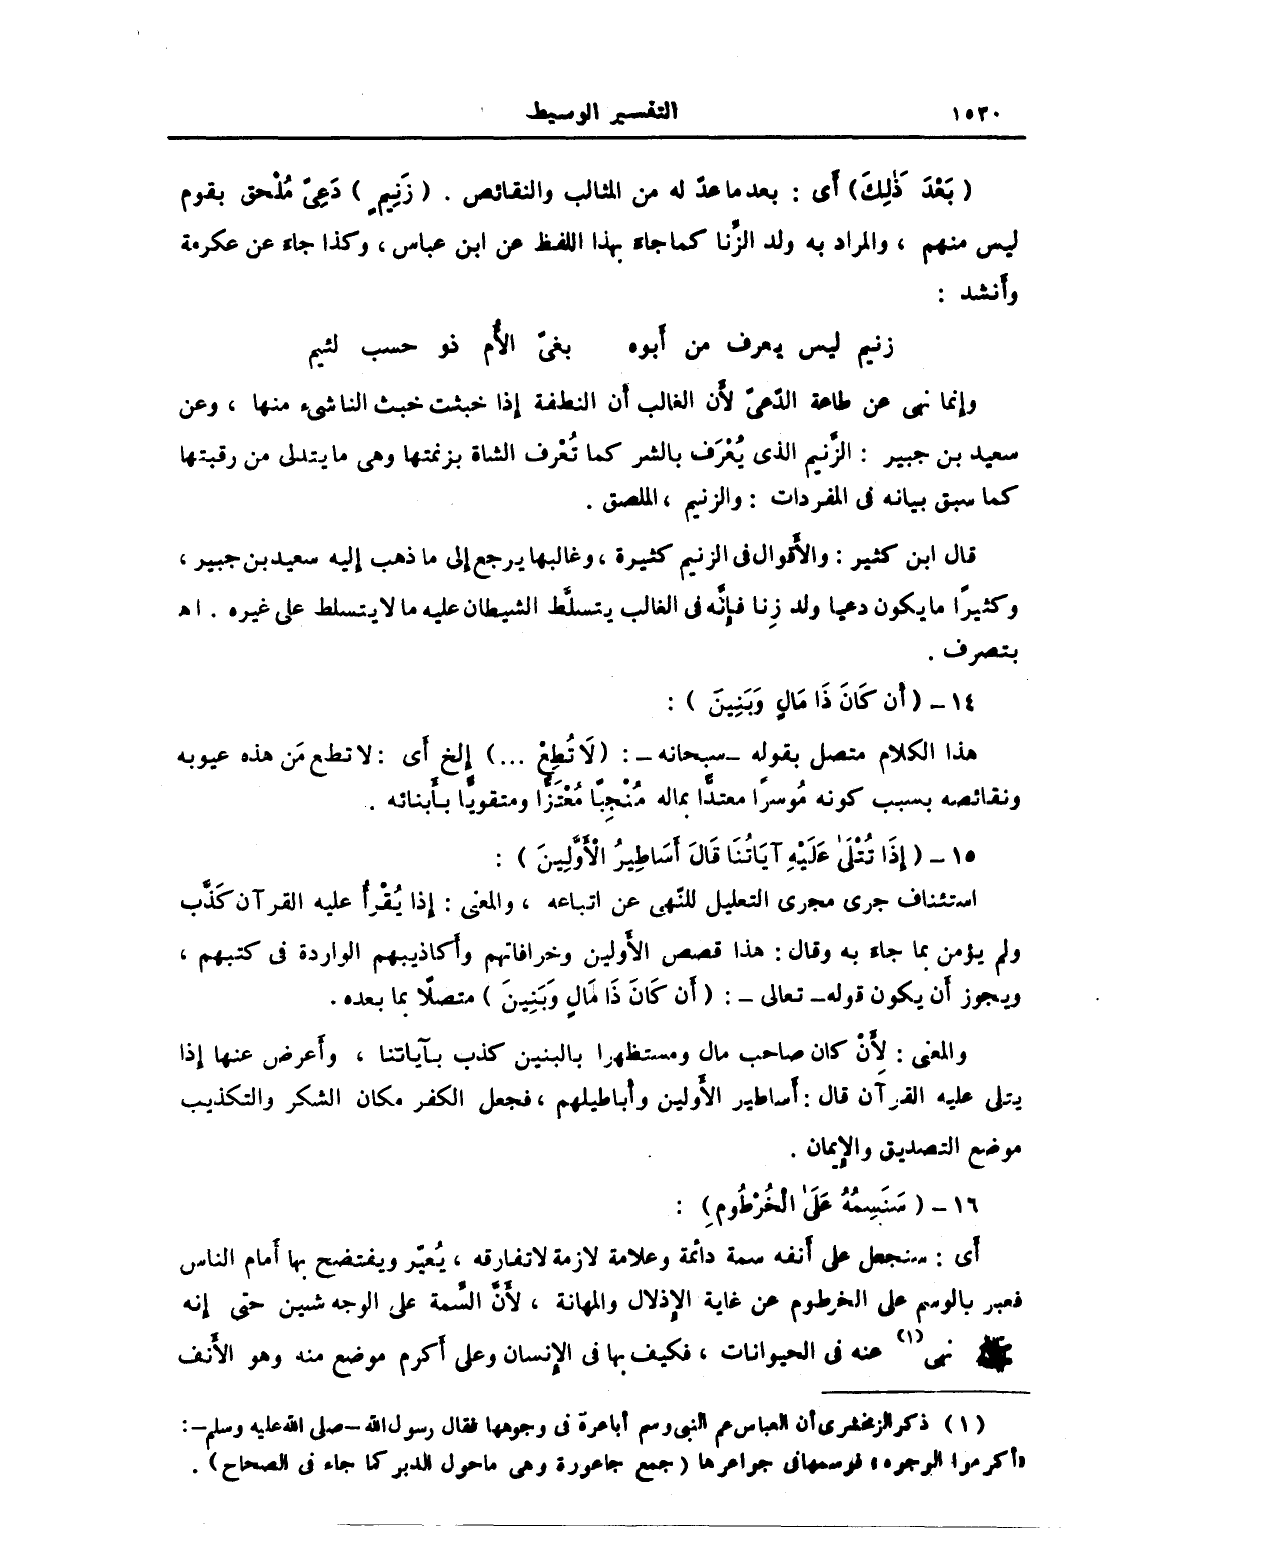 ١٥٣٠ التفسير الوسيط
( بَعْدَ ذَٰلِكَ) أَى : بعد ما عدّ له من المثالب والنقائص . ( زَنِيمٍ ) دَعِىّ مُلْحق بقوم
ليس منهم ، والمراد به ولد الزِّنا كما جاء بهذا اللفظ عن ابن عباس ، وكذا جاء عن عكرمة
وأَنشد :
زنيم ليس يعرف من أَبوه بغىّ الأُم ذو حسب لئيم
وإنما نهى عن طاعة الدّعىّ لأَن الغالب أَن النطفة إذا خبثت خبث الناشىء منها ، وعن
سعيد بن جبير : الزَّنيم الذى يُعْرَف بالشر كما تُعْرف الشاة بزنمتها وهى ما يتدلى من رقبتها
كما سبق بيانه فى المفردات : والزنيم ، الملصق .
قال ابن كثير : والأَقوال فى الزنيم كثيرة ، وغالبها يرجع إلى ما ذهب إليه سعيد بن جبير ،
وكثيرًا ما يكون دعيا ولد زِنا فإنَّه فى الغالب يتسلَّط الشيطان عليه ما لا يتسلط على غيره . اهـ
بتصرف .
١٤ – ( أَن كَانَ ذَا مَالٍ وَبَنِينَ ) :
هذا الكلام متصل بقوله – سبحانه – : (لَا تُطِعْ ...) إلخ أَى : لا تطع مَن هذه عيوبه
ونقائصه بسبب كونه مُوسرًا معتدًّا بماله مُنْجِبًا مُعْتَزًّا ومتقويًّا بأَبنائه .
١٥ – ( إِذَا تُتْلَىٰ عَلَيْهِ آيَاتُنَا قَالَ أَسَاطِيرُ الْأَوَّلِينَ ) :
استئناف جرى مجرى التعليل للنَّهى عن اتباعه ، والمعنى : إذا يُقْرأُ عليه القرآن كَذَّب
ولم يؤمن بما جاء به وقال : هذا قصص الأَولين وخرافاتهم وأَكاذيبهم الواردة فى كتبهم ،
ويجوز أَن يكون قوله – تعالى – : ( أَن كَانَ ذَا مَالٍ وَبَنِينَ ) متصلًا بما بعده .
والمعنى : لِأَنْ كان صاحب مال ومستظهرا بالبنين كذب بآياتنا ، وأَعرض عنها إذا
يتلى عليه القرآن قال : أَساطير الأَولين وأَباطيلهم ، فجعل الكفر مكان الشكر والتكذيب
موضع التصديق والإيمان .
١٦ – ( سَنَسِمُهُ عَلَى الْخُرْطُومِ) :
أَى : سنجعل على أَنفه سمة دائمة وعلامة لازمة لا تفارقه ، يُعيّر ويفتضح بها أَمام الناس
فعبر بالوسم على الخرطوم عن غاية الإذلال والمهانة ، لأَنَّ السِّمة على الوجه شين حتى إنه
نهى (١) عنه فى الحيوانات ، فكيف بها فى الإنسان وعلى أَكرم موضع منه وهو الأَنف
(١) ذكر الزمخشرى أن العباس عم النبى وسم أباعرة فى وجوهها فقال رسول الله – صلى الله عليه وسلم – :
«أكرموا الوجوه» فوسمها فى جواعرها (جمع جاعورة وهى ماحول الدبر كما جاء فى الصحاح) .